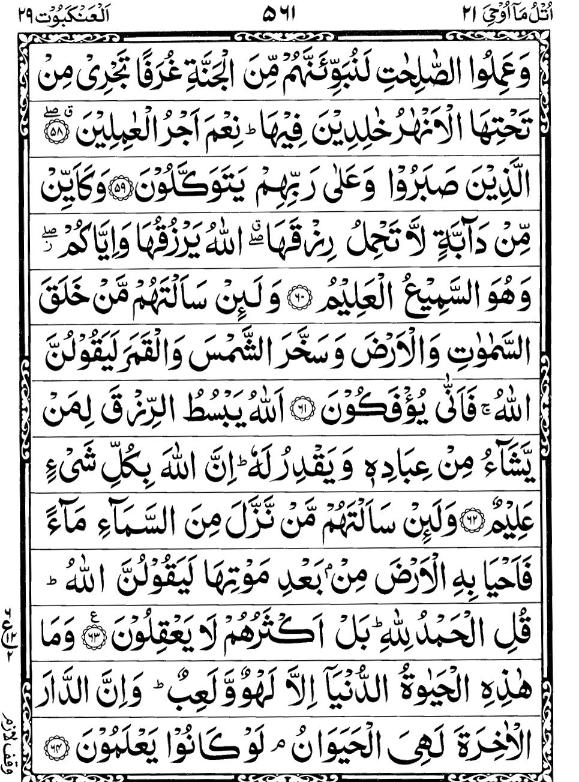 اُتْلُ مَاۤ اُوْحِیَ ۲۱
۵۶۱
اَلْعَنْكَبُوْت ۲۹
وَعَمِلُوا الصّٰلِحٰتِ لَنُبَوِّئَنَّهُمْ مِّنَ الْجَنَّةِ غُرَفًا تَجْرِیْ مِنْ
تَحْتِهَا الْاَنْهٰرُ خٰلِدِیْنَ فِیْهَا ؕ نِعْمَ اَجْرُ الْعٰمِلِیْنَ ۵۸
الَّذِیْنَ صَبَرُوْا وَعَلٰی رَبِّهِمْ یَتَوَكَّلُوْنَ ۵۹ وَكَاَیِّنْ
مِّنْ دَآبَّةٍ لَّا تَحْمِلُ رِزْقَهَا اَللّٰهُ یَرْزُقُهَا وَاِیَّاكُمْ
وَهُوَ السَّمِیْعُ الْعَلِیْمُ ۶۰ وَلَىِٕنْ سَاَلْتَهُمْ مَّنْ خَلَقَ
السَّمٰوٰتِ وَالْاَرْضَ وَسَخَّرَ الشَّمْسَ وَالْقَمَرَ لَیَقُوْلُنَّ
اللّٰهُ ۚ فَاَنّٰی یُؤْفَكُوْنَ ۶۱ اَللّٰهُ یَبْسُطُ الرِّزْقَ لِمَنْ
یَّشَآءُ مِنْ عِبَادِهٖ وَیَقْدِرُ لَهٗ ؕ اِنَّ اللّٰهَ بِكُلِّ شَیْءٍ
عَلِیْمٌ ۶۲ وَلَىِٕنْ سَاَلْتَهُمْ مَّنْ نَّزَّلَ مِنَ السَّمَآءِ مَآءً
فَاَحْیَا بِهِ الْاَرْضَ مِنْۢ بَعْدِ مَوْتِهَا لَیَقُوْلُنَّ اللّٰهُ ؕ
قُلِ الْحَمْدُ لِلّٰهِ ؕ بَلْ اَكْثَرُهُمْ لَا یَعْقِلُوْنَ ۶۳ وَمَا
هٰذِهِ الْحَیٰوةُ الدُّنْیَاۤ اِلَّا لَهْوٌ وَّلَعِبٌ ؕ وَاِنَّ الدَّارَ
الْاٰخِرَةَ لَهِیَ الْحَیَوَانُ ۘ لَوْ كَانُوْا یَعْلَمُوْنَ ۶۴
وقف لازم